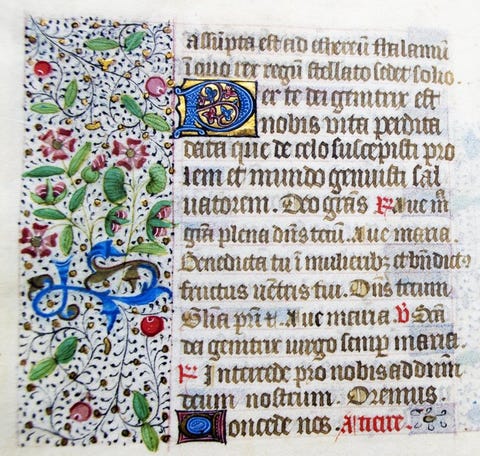 assūpta est ad ethereū thalamū
ī quo rex regū stellato sedet solio
Per te dei genitrix est
nobis vita perdita
data que de celo suscepisti pro
lem et mundo genuisti sal
uatorem. Deo grās ℟ Aue mͣ
grā plena dn̄s tecū. Aue maria.
Benedicta tu ī mulieribꝫ et bn̄dictꝰ
fructus uētris tui. Dn̄s tecum
Glīa prī ⁊. Aue maria. ℣ Scā
dei genitrix uirgo semp maria.
℟ Intercede pro nobis ad dnūm
deum nostrum. Oremus
Concede nos.